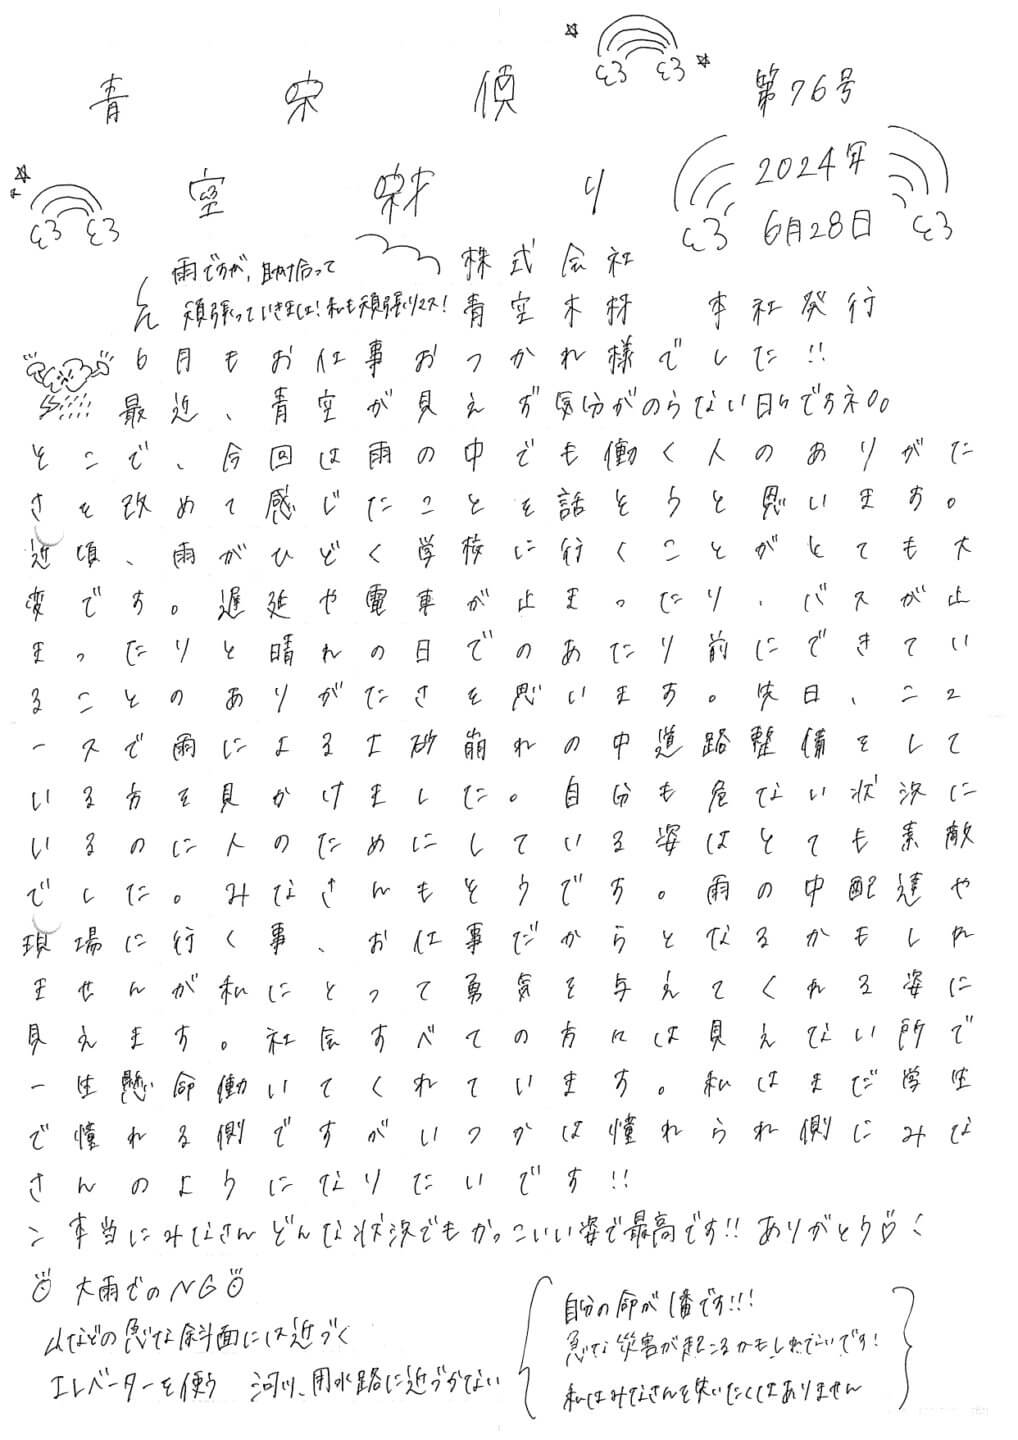 青 栄 偵 第76号
空 栄才 り 2024年
6月28日
雨ですが、助け合って
頑張っていきましょ!私も頑張リマス!
株式会社
青空木材 本社発行
6月もお仕事おつかれ様でした!!
最近、青空が見えず気分がのらない日々ですネ。。
そこで、今回は雨の中でも働く人のありがた
さを改めて感じたことを話そうと思います。
近頃、雨がひどく学校に行くことがとても大
変です。遅延や電車が止まったり、バスが止
まったりと晴れの日でのあたり前にできてい
ることのありがたさを思います。先日、ニュ
ースで雨による土砂崩れの中道路整備をして
いる方を見かけました。自分も危ない状況に
いるのに人のためにしている姿はとても素敵
でした。みなさんもそうです。雨の中配達や
現場に行く事、お仕事だからとなるかもしれ
ませんが私にとって勇気を与えてくれる姿に
見えます。社会すべての方々は見えない所で
一生懸命働いてくれています。私はまだ学生
で憧れる側ですがいつかは憧れられ側にみな
さんのようになりたいです!!
本当にみなさんどんな状況でもかっこいい姿で最高です!!ありがとう♡
大雨でのNG
山などの急な斜面には近づく
エレベーターを使う 河川、用水路に近づかない
自分の命が1番です!!!
急な災害が起こるかもしれないです!
私はみなさんを失いたくはありません